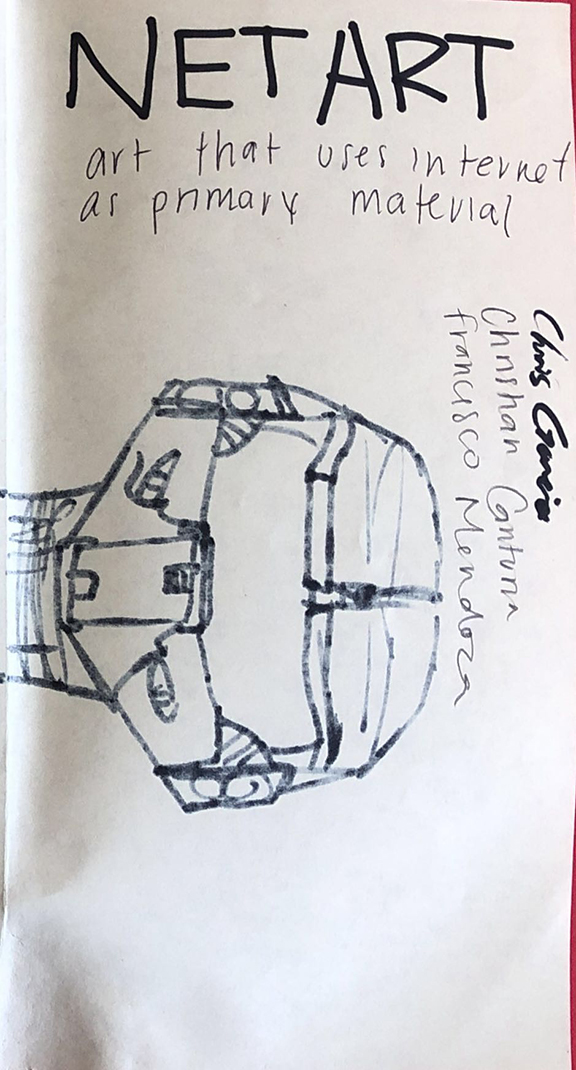 NET ART
art that uses internet
as primary material
Chris Garcia
Christian Cantuna
francisco Mendoza